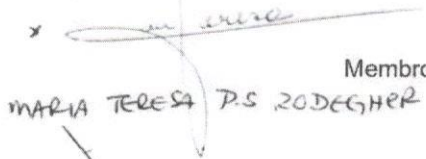 x
Membro
MARIA TERESA P.S ZODEGHER